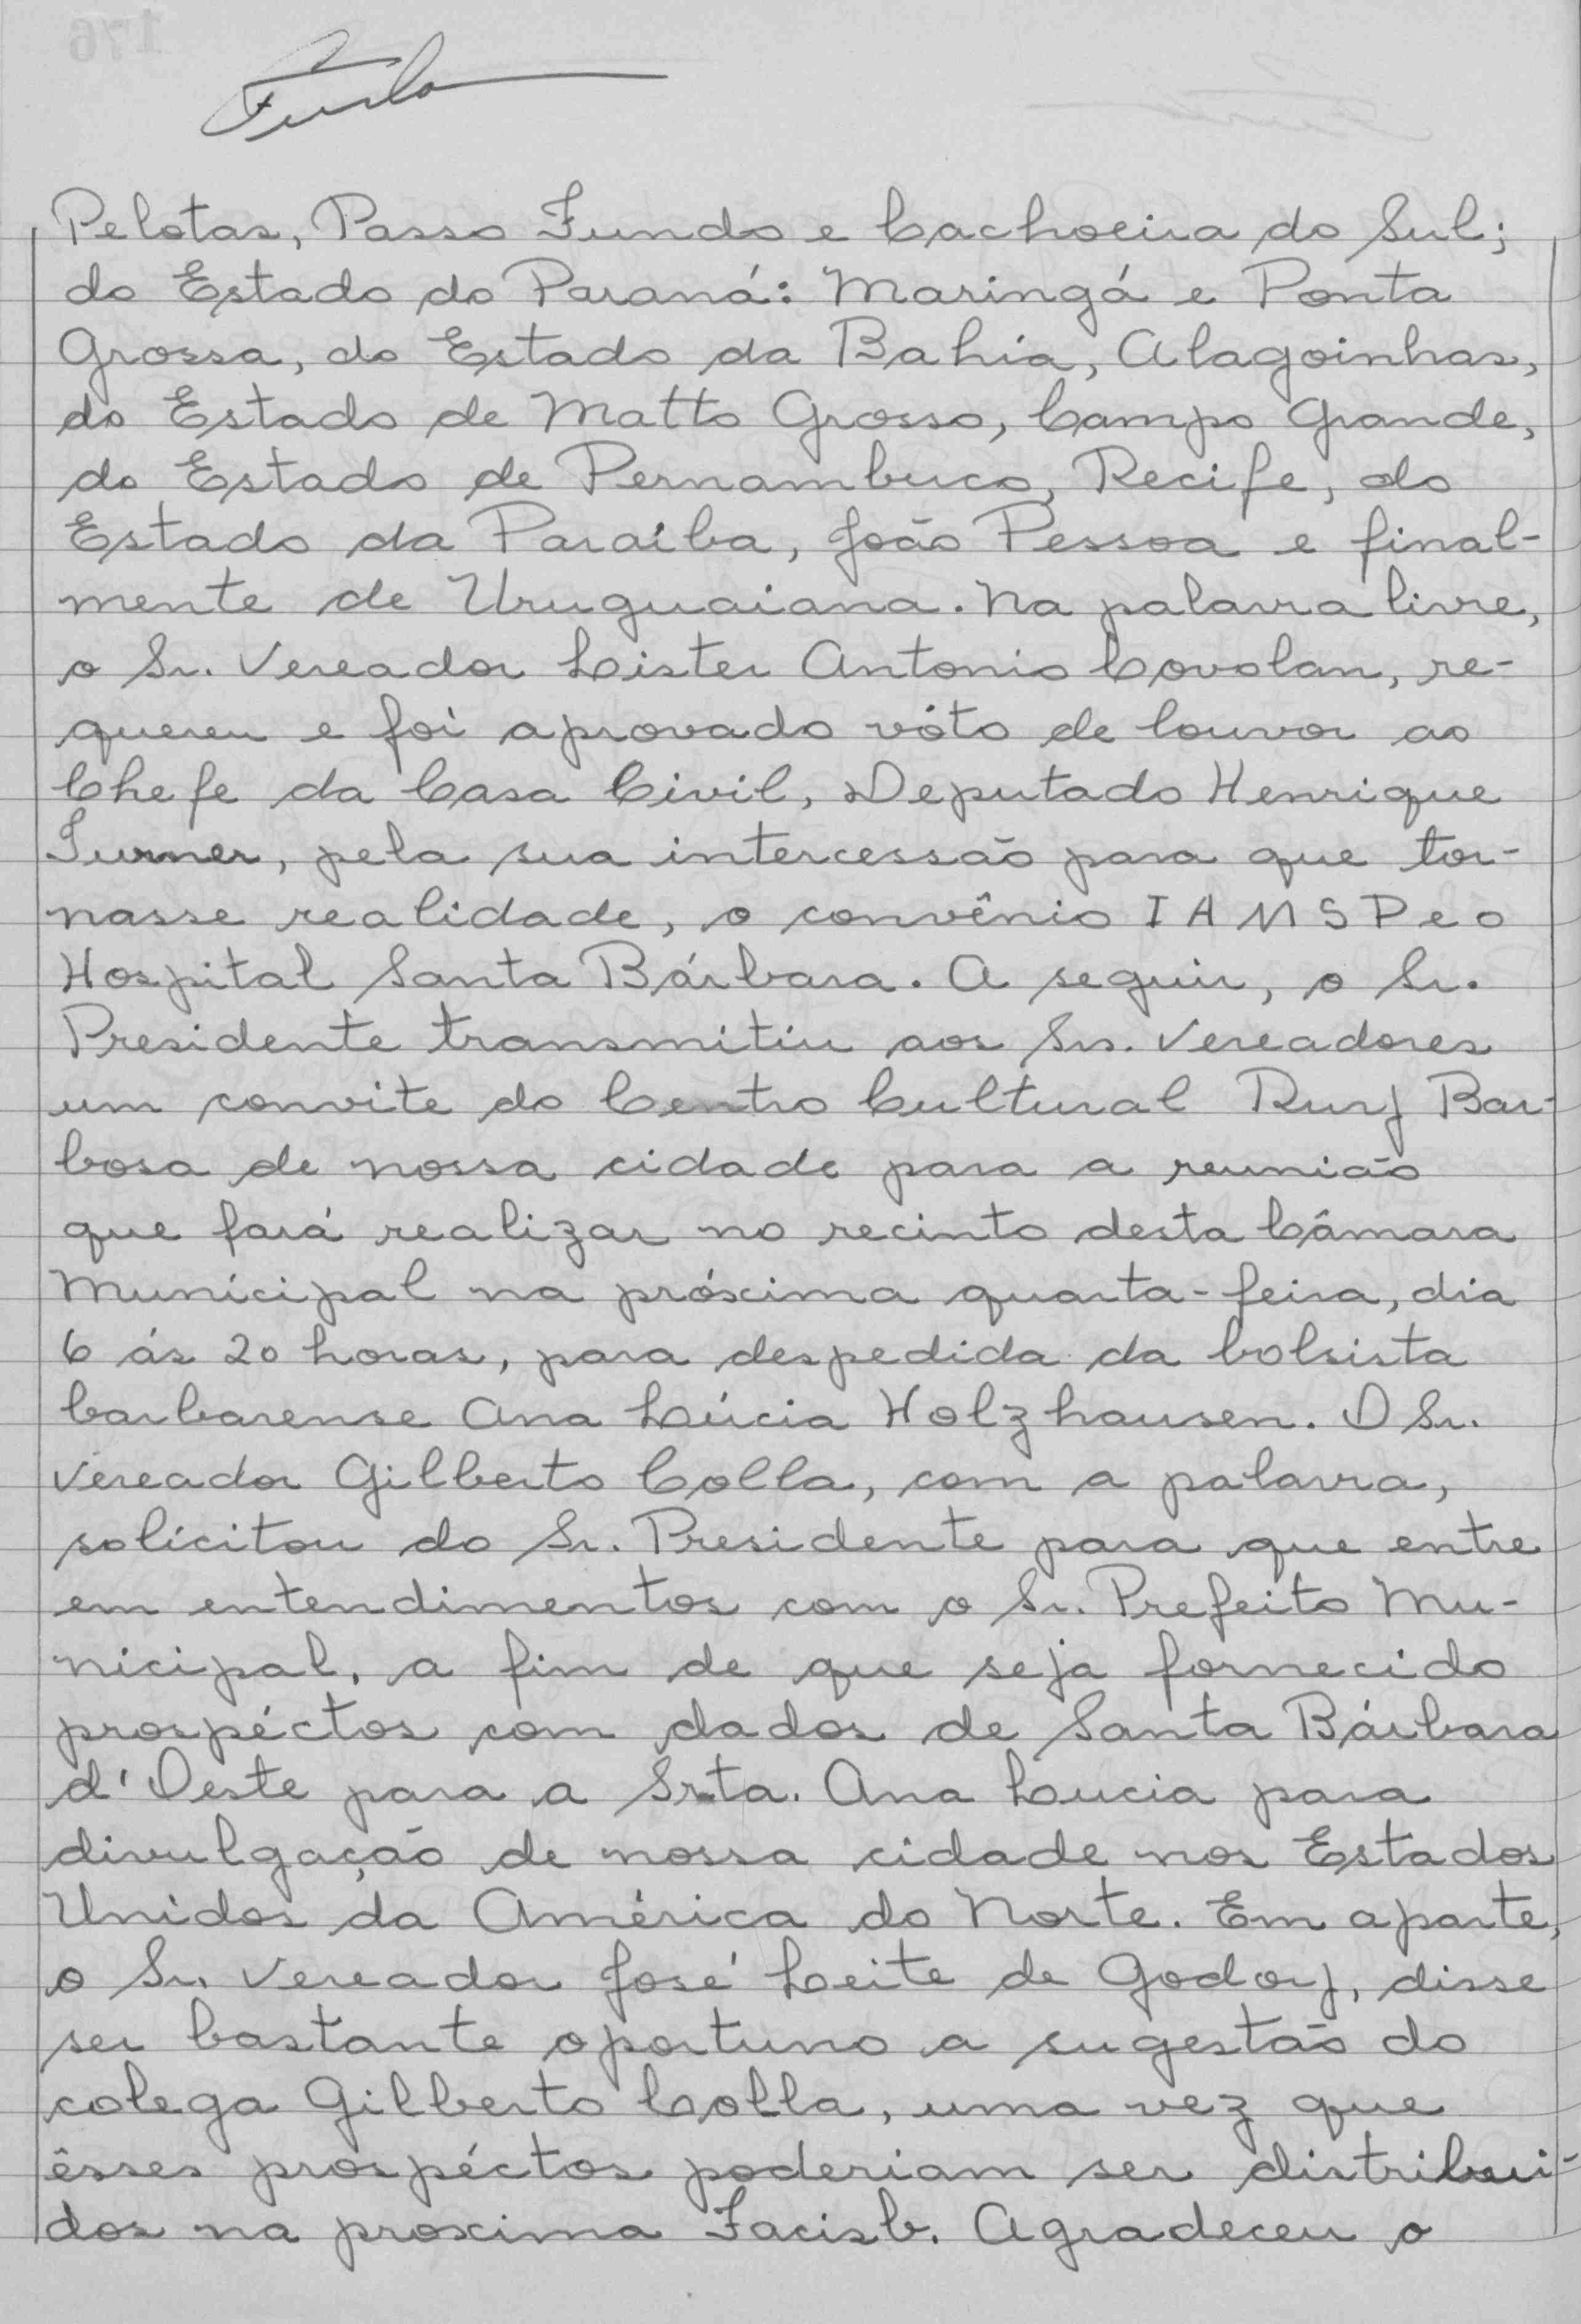 Pelotas, Passo Fundo e Cachoeira do Sul;
do Estado do Paraná: Maringá e Ponta
Grossa, do Estado da Bahia, Alagoinhas,
do Estado de Matto Grosso, Campo Grande,
do Estado de Pernambuco, Recife, do
Estado da Paraíba, João Pessoa e final-
mente de Uruguaiana. Na palavra livre,
o Sr. Vereador Lister Antonio Covolan, re-
quereu e foi aprovado vóto de louvor ao
Chefe da Casa Civil, Deputado Henrique
Turner, pela sua intercessão para que tor-
nasse realidade, o convênio IAMSP e o
Hospital Santa Bárbara. A seguir, o Sr.
Presidente transmitiu aos Srs. Vereadores
um convite do Centro Cultural Ruy Bar-
bosa de nossa cidade para a reunião
que fará realizar no recinto desta Câmara
Municipal na próxima quarta-feira, dia
6 ás 20 horas, para despedida da bolsista
barbarense Ana Lúcia Holzhausen. O Sr.
Vereador Gilberto Colla, com a palavra,
solicitou do Sr. Presidente para que entre
em entendimentos com o Sr. Prefeito Mu-
nicipal, a fim de que seja fornecido
prospéctos com dados de Santa Bárbara
d'Oeste para a Srta. Ana Lucia para
divulgação de nossa cidade nos Estados
Unidos da América do Norte. Em aparte,
o Sr. Vereador José Leite de Godoy, disse
ser bastante oportuno a sugestão do
colega Gilberto Colla, uma vez que
êsses prospéctos poderiam ser distribui-
dos na proxima Facisb. Agradeceu o